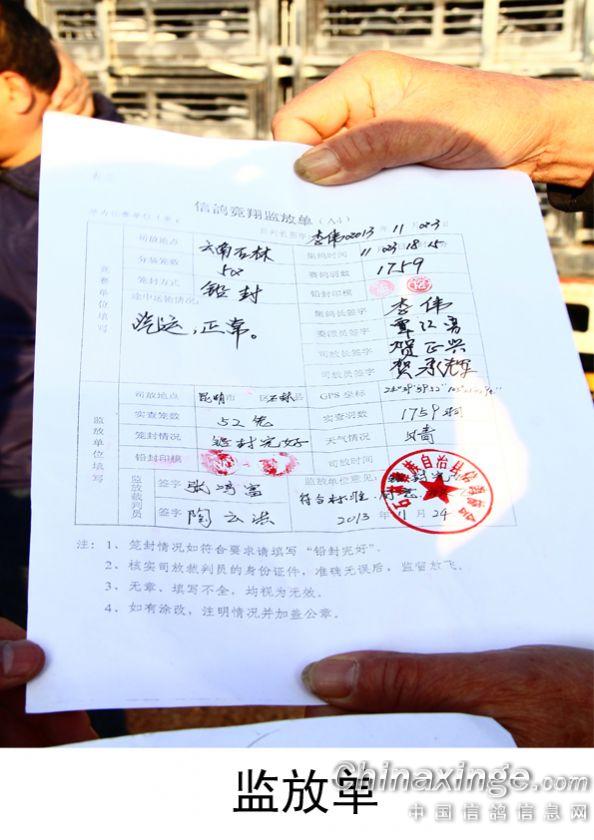 信鸽竞翔监放单（A4）
李伟 2013 年 11 月 23
司放地点 云南石林 集鸽时间 11 23 18 15
分装笼数 50 赛鸽羽数 1759
笼封方式 铅封 铅封印模
途中运输情况： 集鸽长签字 李伟
汽运，正常。
司放长签字 贺正兴
司放员签字 贺承辉
竞赛单位填写
司放地点 昆明市 区 石林县 GPS 坐标
实查笼数 52笼 实查羽数 1759羽
笼封情况 铅封完好 天气情况 晴
铅封印模 司放时间
监放单位填写
监放裁判员 签字 张鸿富 监放单位意见：
符合标准
签字 陶云洪 2013 年 11 月 24
注：1、笼封情况如符合要求请填写“铅封完好”。
2、核实司放裁判员的身份证件，准确无误后，监督放飞。
3、无章、填写不全，均视为无效。
4、如有涂改，注明情况并加盖公章。
监放单
Chinaxinge.com
中国信鸽信息网